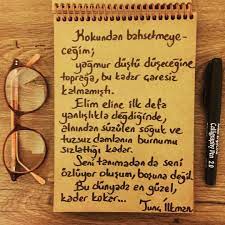 Kokundan bahsetmeye-
ceğim;
yağmur düştü düşeceğine
toprağa, bu kadar çaresiz
kalmamıştı.
Elim eline ilk defa
yanlışlıkla değdiğinde,
alnından süzülen soğuk ve
tuzsuz damlanın burnumu
sızlattığı kadar.
Seni tanımadan da seni
özlüyor oluşum, boşuna değil.
Bu dünyada en güzel,
kader kokar...
Tunç İlkman
Calligraphy Pen 2.0